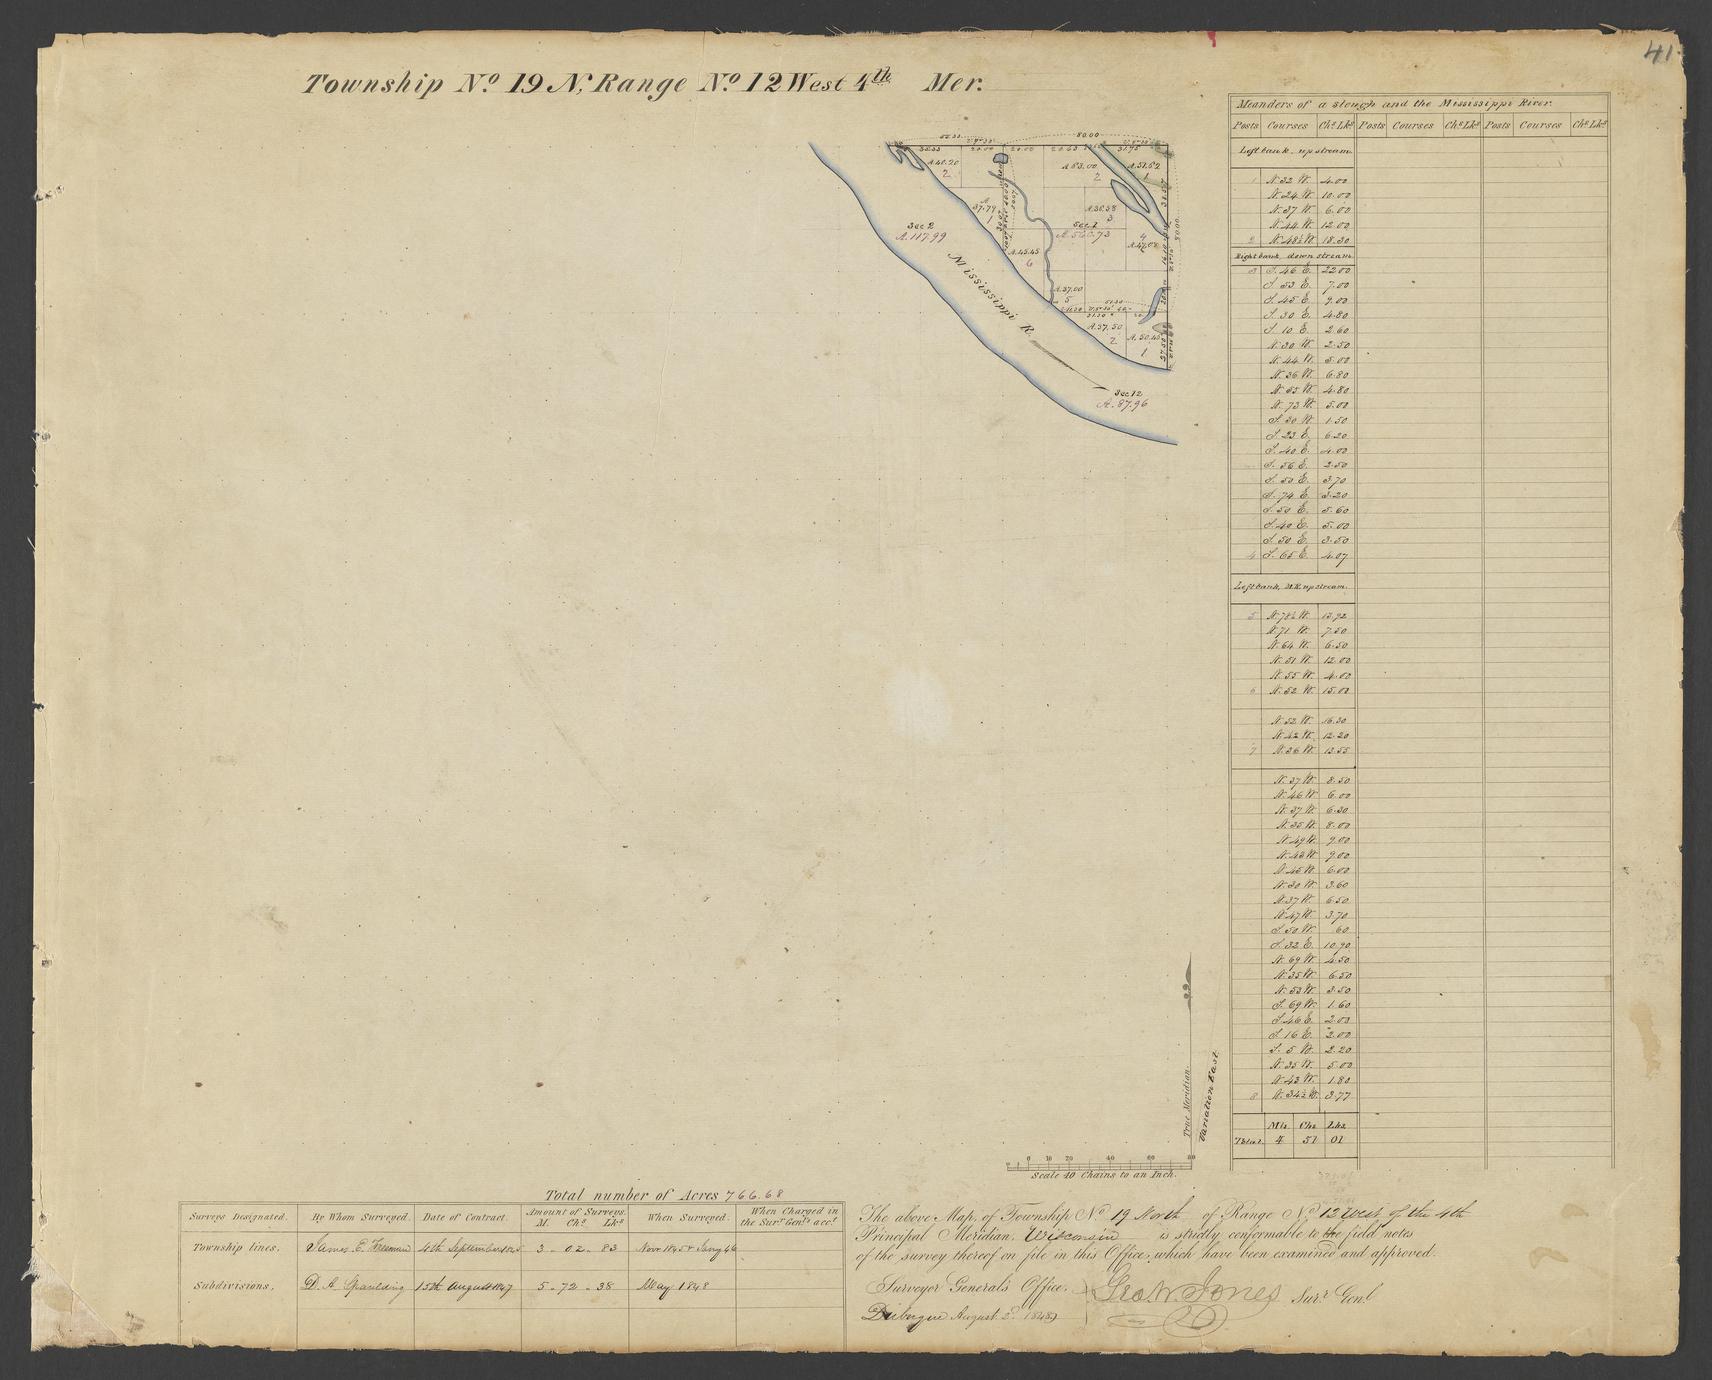 41
Township No. 19 N, Range No. 12 West 4th Mer.
80.00
A. 40.20
2
A. 63.00
2
A. 51.62
1
A. 37.79
1
A. 36.38
3
Sec 2
A. 117.99
Sec 1
A. 560.73
4
A. 45.45
6
80.00
Mississippi R.
A. 37.00
5
A. 37.50
2
A. 50.46
1
Sec 12
A. 87.96
Meanders of a slough and the Mississippi River.
Posts Courses Chs Lks Posts Courses Chs Lks Posts Courses Chs Lks
Left bank, up stream.
1 N. 32 W. 4.00
N. 24 W. 10.00
N. 37 W. 6.00
N. 44 W. 12.00
2 N. 48½ W. 18.30
Right bank, down stream.
3 S. 46 E. 22.00
S. 53 E. 7.00
S. 45 E. 9.00
S. 30 E. 4.80
S. 10 E. 2.60
N. 30 W. 2.50
N. 44 W. 5.00
N. 36 W. 6.80
N. 55 W. 4.80
N. 73 W. 5.00
S. 30 W. 1.50
S. 23 E. 6.20
S. 40 E. 4.00
S. 56 E. 2.50
S. 50 E. 3.70
S. 74 E. 3.20
S. 50 E. 5.60
S. 40 E. 5.00
S. 50 E. 3.50
4 S. 65 E. 4.07
Left bank, M.R. up stream.
5 N. 78½ W. 13.92
N. 71 W. 7.50
N. 64 W. 6.50
N. 51 W. 12.00
N. 55 W. 4.00
6 N. 52 W. 15.00
N. 52 W. 16.30
N. 42 W. 12.20
7 N. 36 W. 13.55
N. 37 W. 8.50
N. 46 W. 6.00
N. 37 W. 6.30
N. 35 W. 8.00
N. 49 W. 9.00
N. 43 W. 9.00
N. 45 W. 6.00
N. 30 W. 3.60
N. 37 W. 6.50
N. 47 W. 3.70
S. 50 W. 60
S. 32 E. 10.90
N. 69 W. 4.50
N. 35 W. 6.50
N. 53 W. 3.50
S. 69 W. 1.60
S. 46 E. 2.00
S. 16 E. 2.00
S. 5 W. 2.20
N. 35 W. 5.00
N. 43 W. 1.80
8 N. 34½ W. 3.77
Mls Chs Lks
Total 4 51 01
True Meridian.
Variation East.
0 10 20 40 60 80
Scale 40 Chains to an Inch.
Total number of Acres 766.68
Surveys Designated. By Whom Surveyed. Date of Contract. Amount of Surveys. M. Chs. Lks When Surveyed. When Charged in the Surr Genl's acct
Township lines. James E. Freeman 4th September 1845 3 - 02 - 83 Novr 1845 & Jany 46
Subdivisions. D. A. Spaulding 15th August 1847 5 - 72 - 38 May 1848
The above Map, of Township No. 19 North of Range No. 12 West of the 4th
Principal Meridian, Wisconsin is strictly conformable to the field notes
of the survey thereof on file in this Office, which have been examined and approved.
Surveyor General's Office,
Dubuque August 2d 1848
Geo. W. Jones Surr Genl